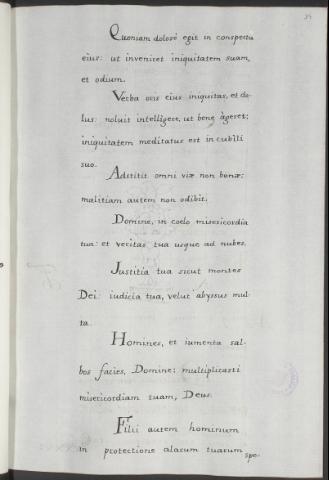 Quoniam dolosè egit in conspectu
eius: ut inveniret iniquitatem suam,
et odium.
Verba oris eius iniquitas, et do-
lus: noluit intelligere, ut benè àgeret;
iniquitatem meditatus est in cubìli
suo.
Adstitit omni viæ non bonæ:
malitiam autem non odibit.
Domine, in coelo misericordia
tua: et veritas tua usque ad nubes.
Justitia tua sicut montes
Dei: iudicia tua, velut abyssus mul-
ta.
Homines, et iumenta sal-
bos facies, Domine: multiplicasti
misericordiam tuam, Deus.
Filii autem hominum
in protectione alarum tuarum spe-